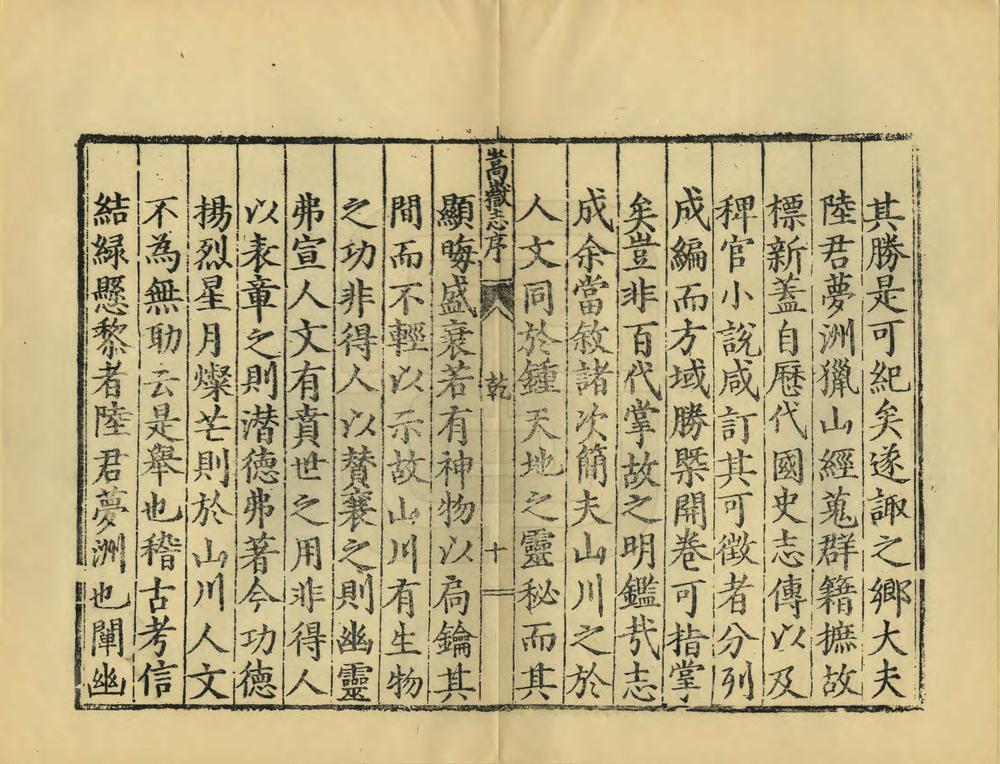 其勝是可紀矣遂諏之鄉大夫
陸君夢洲獵山經蒐群籍摭故
標新蓋自歷代國史志傳以及
稗官小說咸訂其可徵者分列
成編而方域勝槩開卷可指掌
矣豈非百代掌故之明鑑哉志
成余當敘諸次簡夫山川之於
人文同於鍾天地之靈秘而其
嵩嶽志序 乾 十
顯晦盛衰若有神物以扃鑰其
間而不輕以示故山川有生物
之功非得人以贊襄之則幽靈
弗宣人文有賁世之用非得人
以表章之則潛德弗著今功德
揚烈星月燦芒則於山川人文
不為無助云是舉也稽古考信
結緑懸黎者陸君夢洲也闡幽